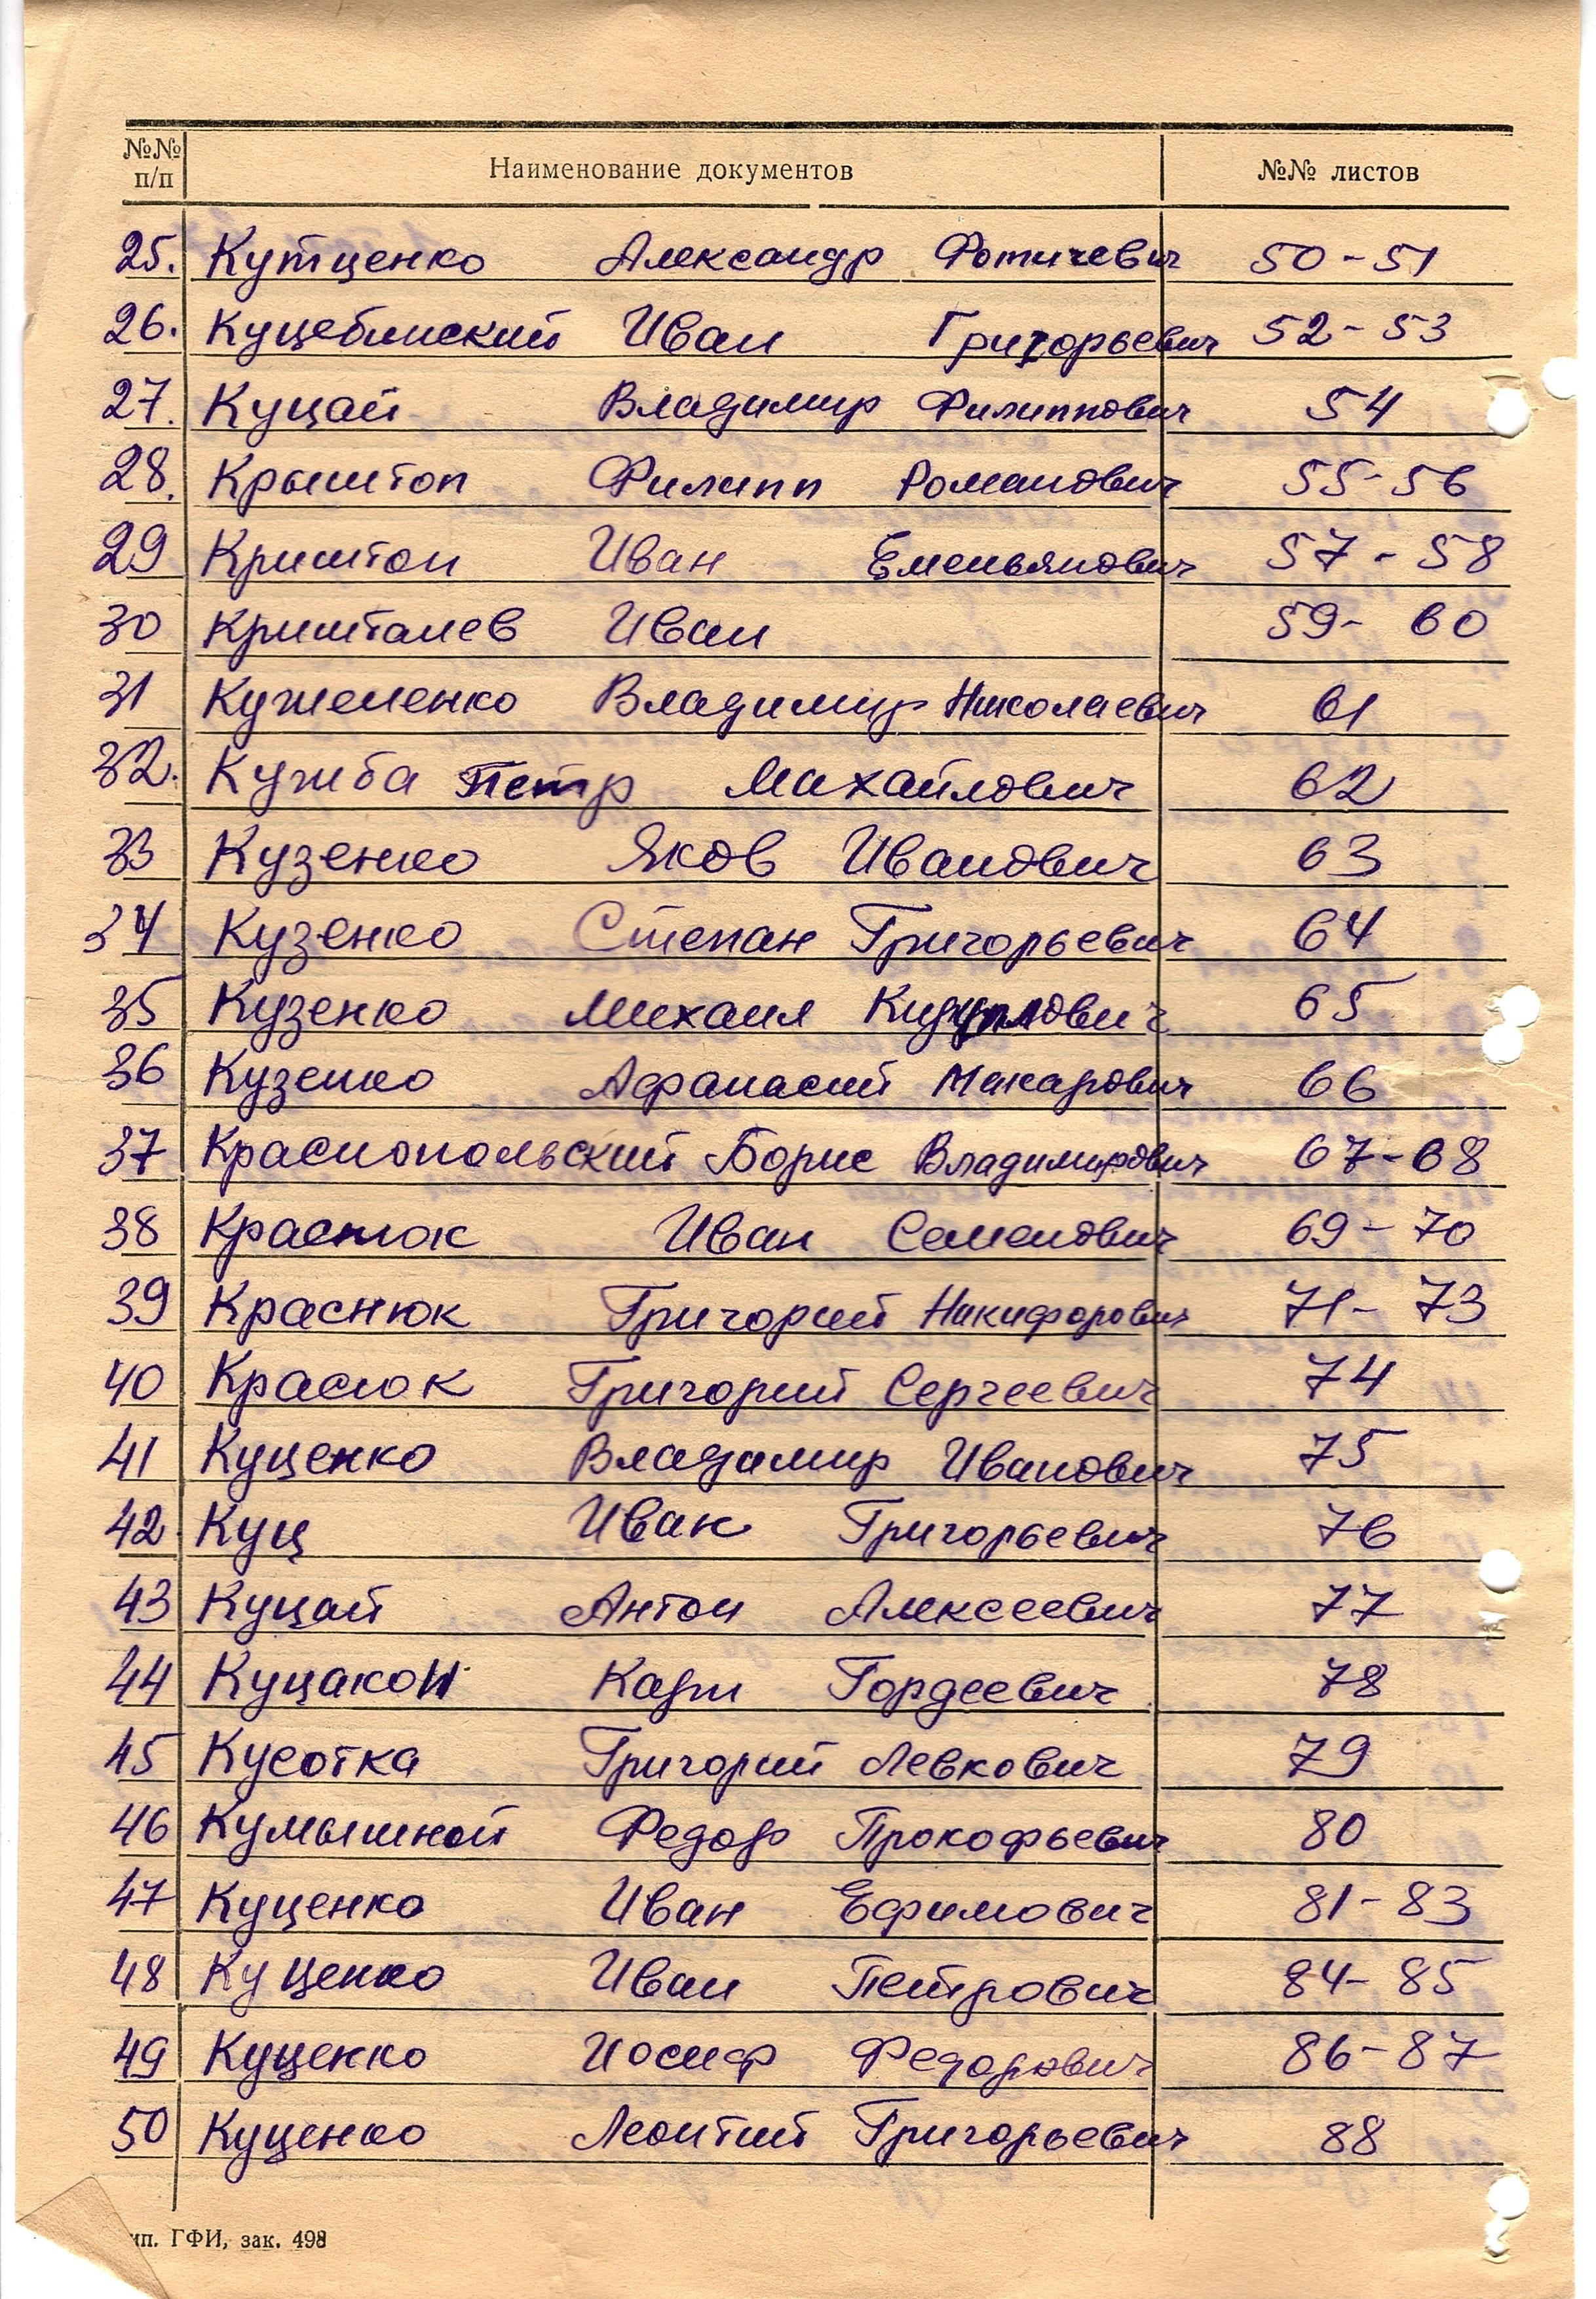 №№ п/п Наименование документов №№ листов
25. Кутценко Александр Фотичевич 50-51
26. Куцеблиский Иван Григорьевич 52-53
27. Куцай Владимир Филиппович 54
28. Крыштоп Филипп Романович 55-56
29 Криштоп Иван Емельянович 57-58
30 Кришталев Иван 59-60
31 Кужеленко Владимир Николаевич 61
32. Кужба Петр Михайлович 62
33 Кузенко Яков Иванович 63
34 Кузенко Степан Григорьевич 64
35 Кузенко Михаил 65
36 Кузенко Афанасий Макарович 66
37 Краснопольский Борис Владимирович 67-68
38 Краснюк Иван Семенович 69-70
39 Краснюк Григорий Никифорович 71-73
40 Красюк Григорий Сергеевич 74
41 Куценко Владимир Иванович 75
42. Куц Иван Григорьевич 76
43 Куцай Антон Алексеевич 77
44 Куцакон Карп Гордеевич 78
45 Кусотка Григорий Левкович 79
46 Кумышной Федор Прокофьевич 80
47 Куценко Иван Ефимович 81-83
48 Куценко Иван Петрович 84-85
49 Куценко Иосиф Федорович 86-87
50 Куценко Леонтий Григорьевич 88
ип. ГФИ, зак. 498